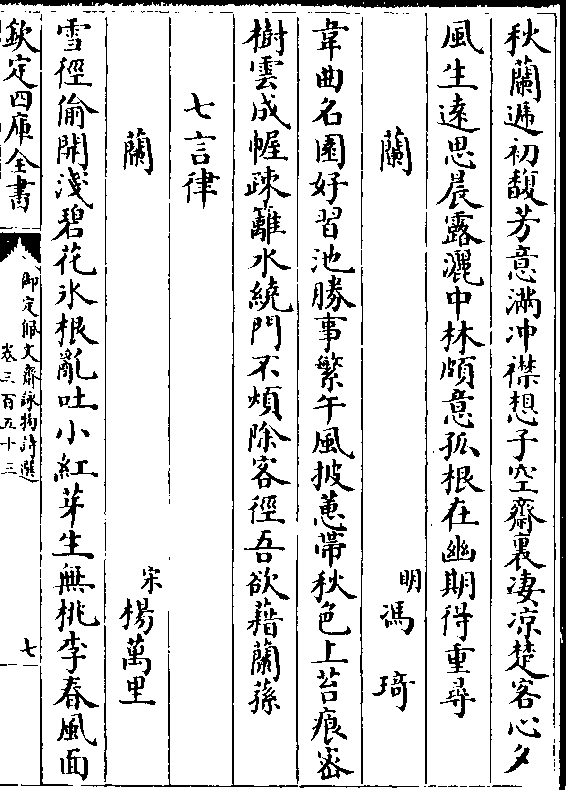 秋蘭遞初馥芳意滿冲襟想子空齋裏淒凉楚客心夕
風生遠思晨露灑中林頗意孤根在幽期得重尋
蘭 明馮琦
韋曲名園好習池勝事繁午風披蕙帶秋色上苔痕密
樹雲成幄疎籬水繞門不煩除客徑吾欲藉蘭蓀
七言律
蘭 宋楊萬里
雪徑偷開淺碧花氷根亂吐小紅芽生無桃李春風面
欽定四庫全書
御定佩文齋詠物詩選
卷三百五十三
七